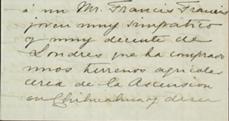 á un Mr. Francis Francis
joven muy simpatico
y muy decente de
Londres que ha comprado
unos terrenos agricolas
cerca de la Ascension
en Chihuahua y desea